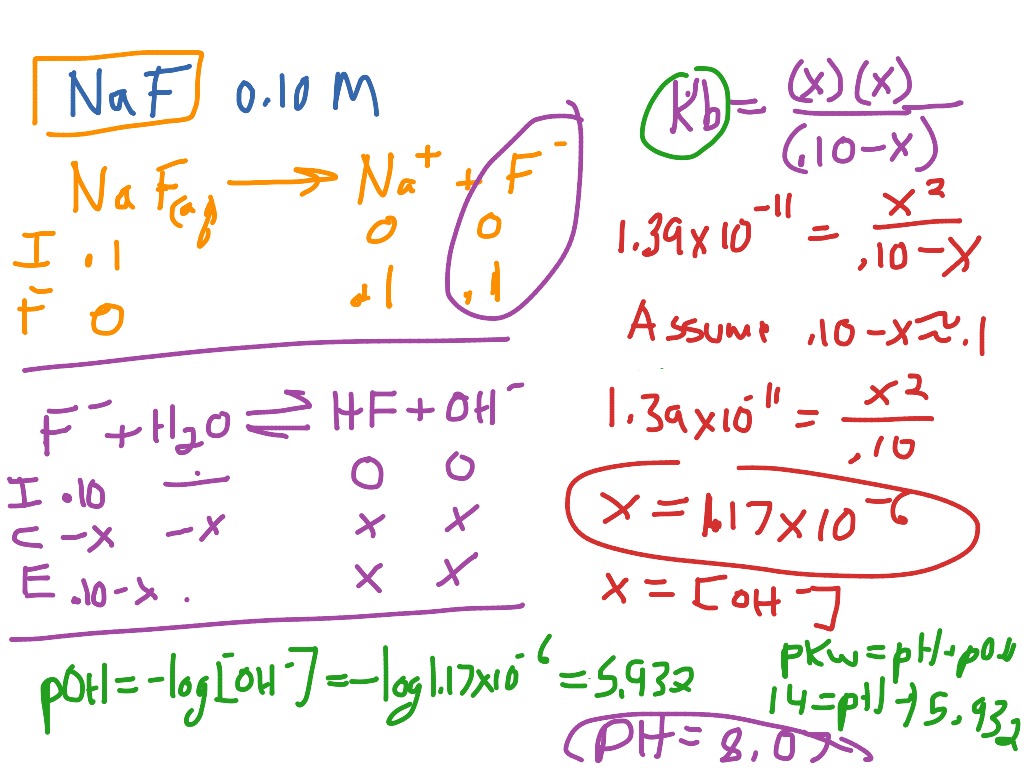 NaF 0.10 M
NaF(aq) → Na⁺ + F⁻
I .1 0 0
F 0 .1 .1
F⁻ + H₂O ⇌ HF + OH⁻
I .10 — 0 0
C -x -x x x
E .10-x . x x
Kb = (x)(x) / (.10-x)
1.39x10⁻¹¹ = x² / .10-x
Assume .10-x≈.1
1.39x10⁻¹¹ = x² / .10
x = 1.17x10⁻⁶
x = [OH⁻]
pOH = -log[OH⁻] = -log 1.17x10⁻⁶ = 5.932
pKw = pH + pOH
14 = pH + 5.932
pH = 8.07